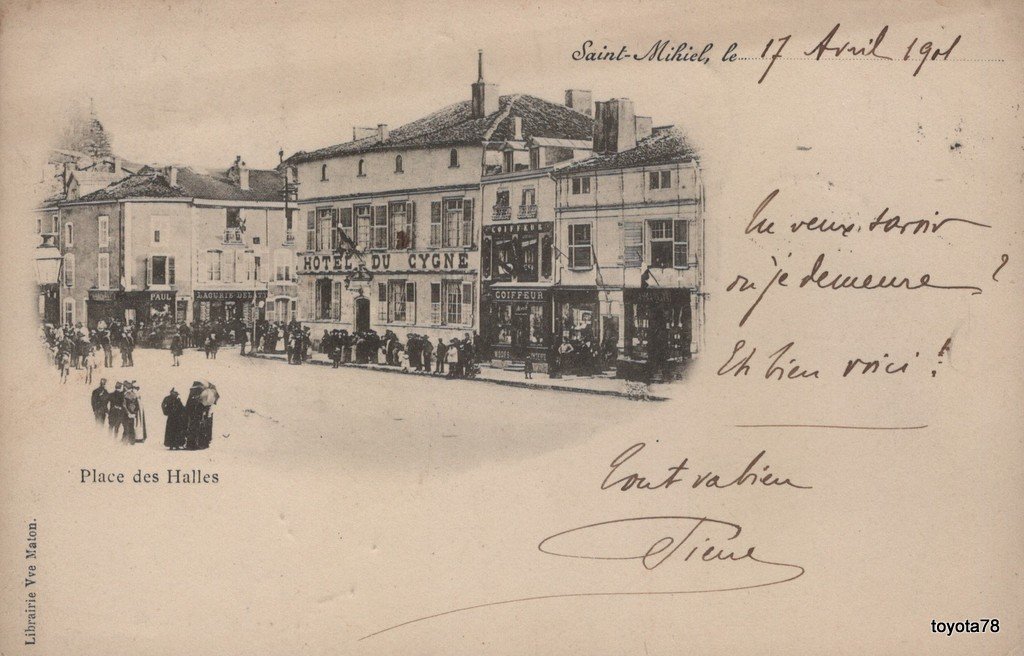 Saint-Mihiel, le 17 Avril 1901
Tu veux savoir
où je demeure ?
Eh bien voici !
Tout va bien
Pierre
HÔTEL DU CYGNE
COIFFEUR
COIFFEUR
PAUL
Place des Halles
Librairie Vve Maton.
toyota78